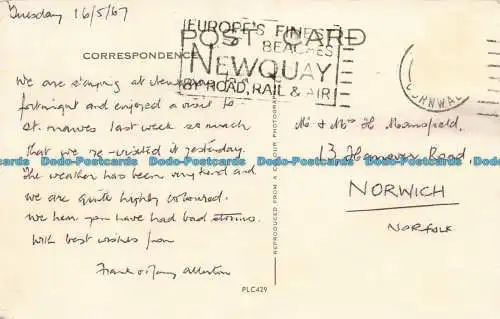 Tuesday 16/5/67
POST CARD
EUROPE'S FINEST
BEACHES
NEWQUAY
BY ROAD, RAIL & AIR
CORNWALL
CORRESPONDENCE
We are staying at
fortnight and enjoyed a visit to
St. Mawes last week so much
that we re-visited it yesterday.
The weather has been very kind and
we are quite highly coloured.
We hear you have had bad storms.
With best wishes from
Frank & Mary Allerton
Mr & Mrs H Mansfield.
13 Hanover Road.
NORWICH
NORFOLK
REPRODUCED FROM A COLOUR PHOTOGRAPH
PLC429
Dodo-Postcards Dodo-Postcards Dodo-Postcards Dodo-Postcards Dodo-Postcards